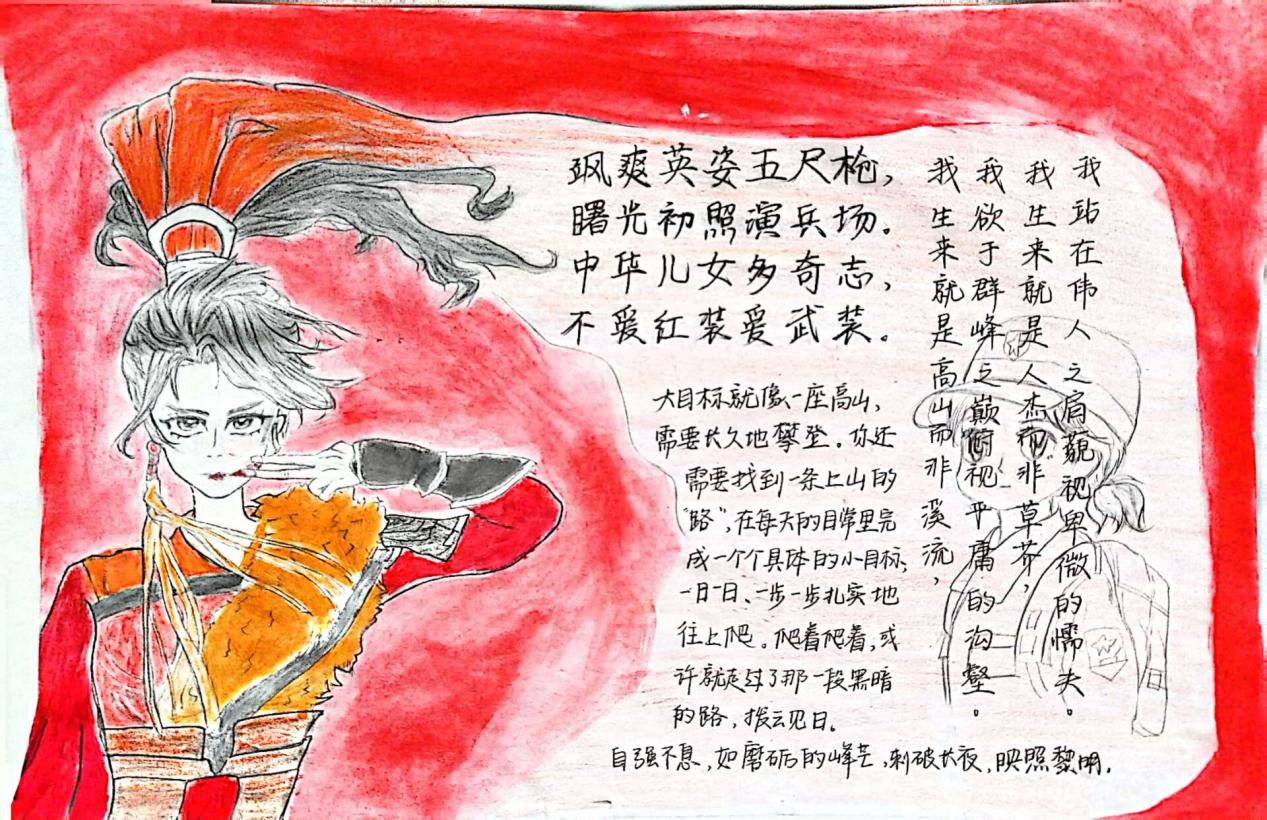 飒爽英姿五尺枪，
曙光初照演兵场。
中华儿女多奇志，
不爱红装爱武装。
大目标就像一座高山，
需要长久地攀登。你还
需要找到一条上山的
“路”，在每天的日常里完
成一个个具体的小目标，
一日一日、一步一步扎实地
往上爬。爬着爬着，或
许就走过了那一段黑暗
的路，拨云见日。
我生来就是高山而非溪流，
我欲于群峰之巅俯视平庸的沟壑。
我生来就是人杰而非草芥，
我站在伟人之肩藐视卑微的懦夫。
自强不息，如磨砺的峰芒，刺破长夜，映照黎明。